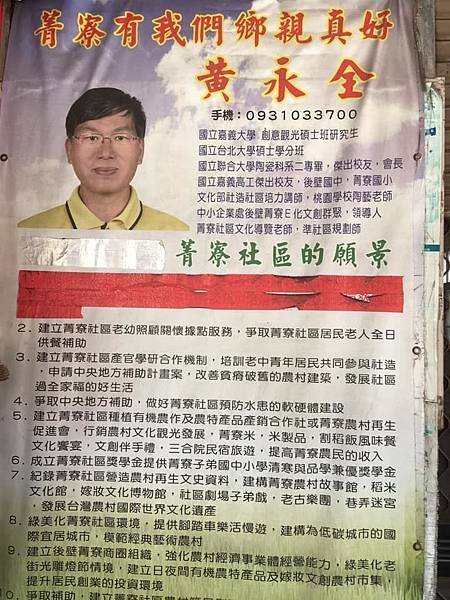 菁寮有我們鄉親真好
黃永全
手機：0931033700
國立嘉義大學 創意觀光碩士班研究生
國立台北大學碩士學分班
國立聯合大學陶瓷科系二專畢，傑出校友，會長
國立嘉義高工傑出校友，後壁國中，菁寮國小
文化部社造社區培力講師，桃園學校陶藝老師
中小企業處後壁菁寮E化文創群聚，領導人
菁寮社區文化導覽老師，準社區規劃師
菁寮社區的願景
2．建立菁寮社區老幼照顧關懷據點服務，爭取菁寮社區居民老人全日
供餐補助
3．建立菁寮社區產官學研合作機制，培訓老中青年居民共同參與社造
，申請中央地方補助計畫案，改善貧瘠破舊的農村建築，發展社區
過全家福的好生活
4．爭取中央地方補助，做好菁寮社區預防水患的軟硬體建設
5．建立菁寮社區種植有機農作及農特產品產銷合作社或菁寮農村再生
促進會，行銷農村文化觀光發展，菁寮米，米製品，割稻飯風味餐
文化饗宴，文創伴手禮，三合院民宿旅遊，提高菁寮農民的收入
6．成立菁寮社區獎學金提供菁寮子弟國中小學清寒與品學兼優獎學金
7．紀錄菁寮社區營造農村再生文史資料，建構菁寮農村故事館，稻米
文化館，嫁妝文化博物館，社區劇場子弟戲，老古樂團，巷弄迷宮
，發展台灣農村國際世界文化遺產
8．綠美化菁寮社區環境，提供腳踏車樂活慢遊，建構為低碳城市的國
際宜居城市，模範經典藝術農村
9．建立後壁菁寮商圈組織，強化農村經濟事業體經營能力，綠美化老
街光雕燈節情境，建立日夜間有機農特產品及嫁妝文創農村市集，
提升居民創業的投資環境
10．爭取補助，建立菁寮社區